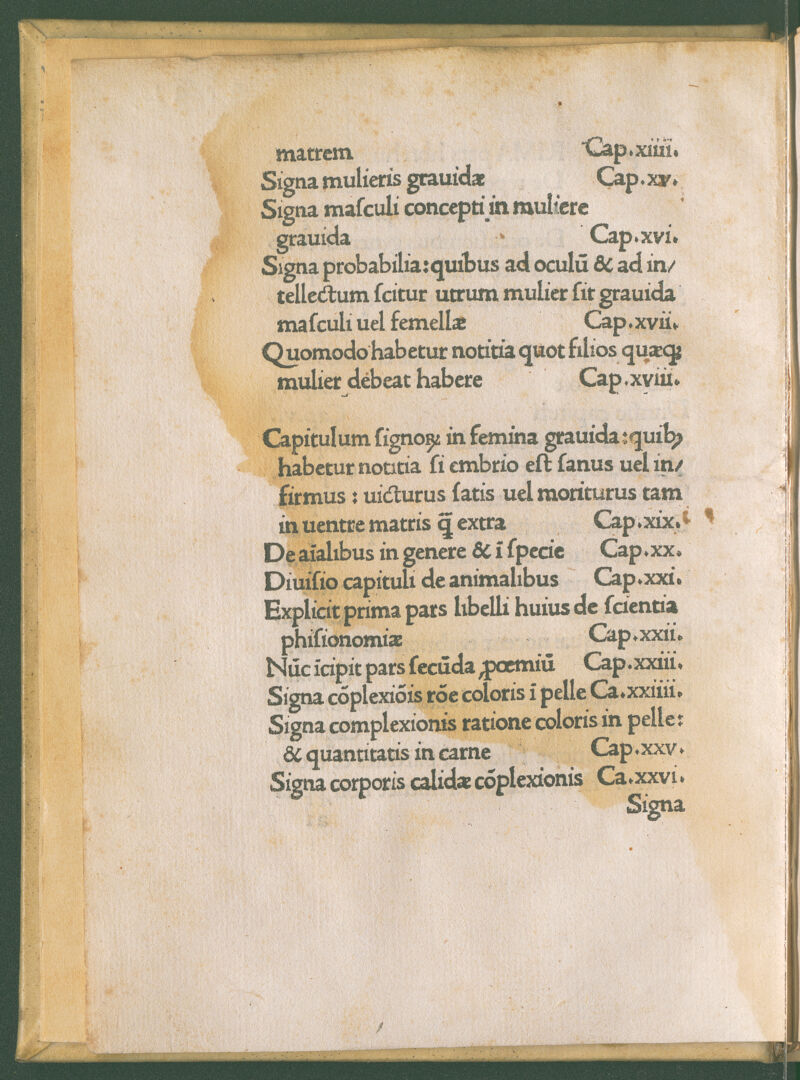 matrem Cap.xiiii.
Signa mulieris grauidæ Cap.xv.
Signa maſculi concepti in muliere
grauida Cap.xvi.
Signa probabilia:quibus ad oculū & ad in/
tellectum ſcitur utrum mulier ſit grauida
maſculi uel femellæ Cap.xvii.
Quomodo habetur notitia quot filios quæqꝫ
mulier debeat habere Cap.xviii.
Capitulum ſignoꝝ in femina grauida:quibꝰ
habetur notitia ſi embrio eſt ſanus uel in/
firmus : uicturus ſatis uel moriturus tam
in uentre matris q̄̄ extra Cap.xix.
De aīalibus in genere & ī ſpecie Cap.xx.
Diuiſio capituli de animalibus Cap.xxi.
Explicit prima pars libelli huius de ſcientia
phiſionomiæ Cap.xxii.
Nūc īcipit pars ſecūda ꝓœmiū Cap.xxiii.
Signa cōplexiōis rōe coloris ī pelle Ca.xxiiii.
Signa complexionis ratione coloris in pelle:
& quantitatis in carne Cap.xxv.
Signa corporis calidæ cōplexionis Ca.xxvi.
Signa